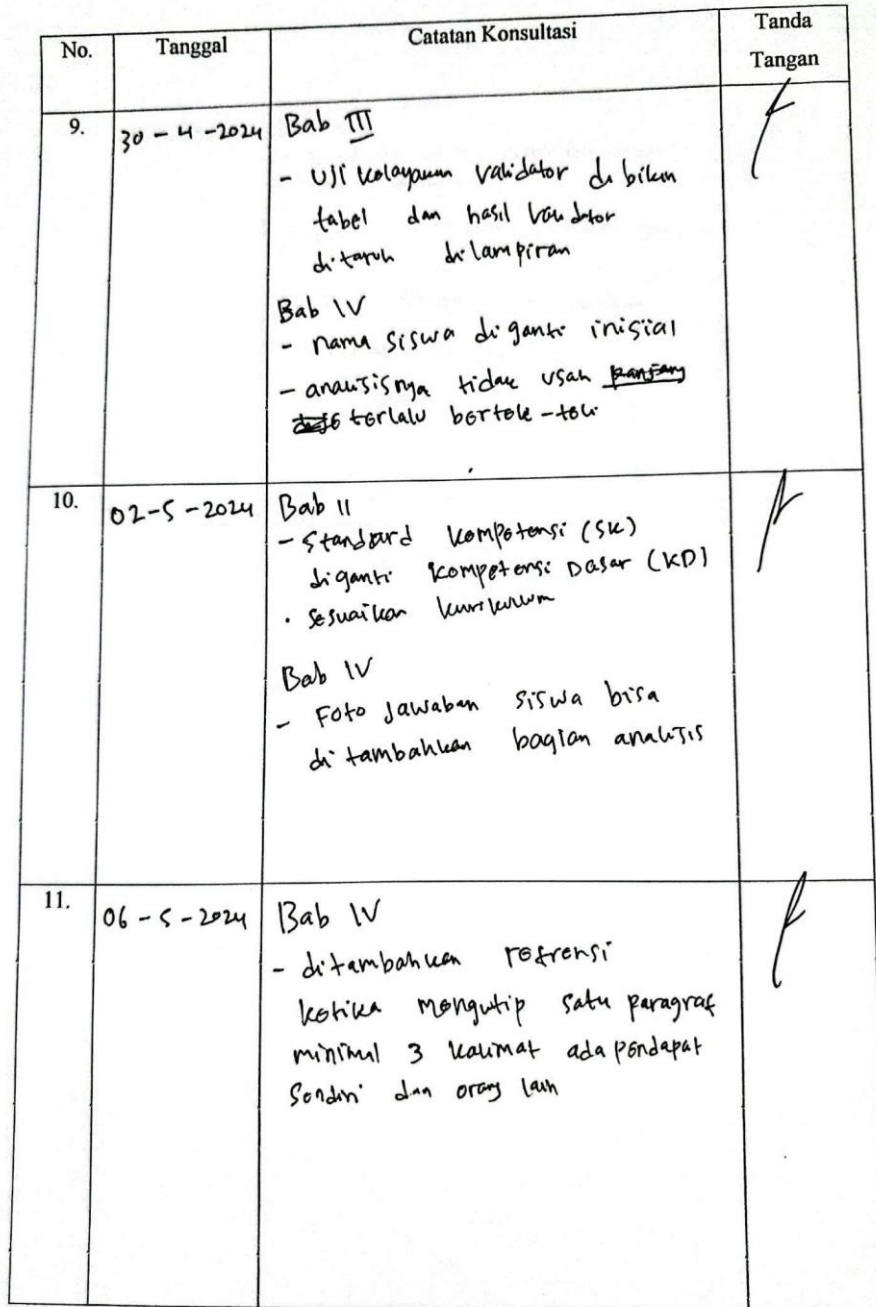 No.
Tanggal
Catatan Konsultasi
Tanda
Tangan
9.
30 - 4 - 2024
Bab III
- Uji kelayakan validator di bikin
tabel dan hasil validator
di taruh di lampiran
Bab IV
- nama siswa di ganti inisial
- analisisnya tidak usah panjang
terlalu bertele-tele
10.
02-5-2024
Bab II
- Standard kompetensi (SK)
diganti kompetensi Dasar (KD)
. sesuaikan kurikulum
Bab IV
- Foto Jawaban siswa bisa
di tambahkan bagian analisis
11.
06 - 5 - 2024
Bab IV
- ditambahkan refrensi
ketika mengutip satu paragraf
minimal 3 kalimat ada pendapat
sendiri dan orang lain